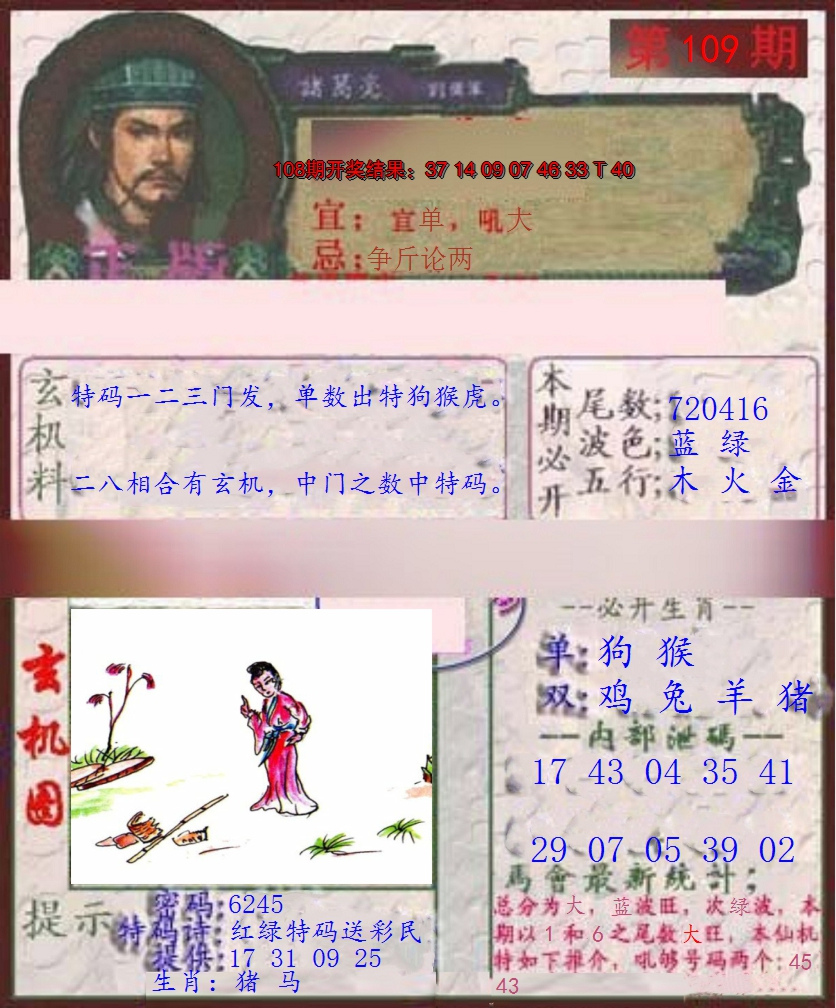 第 109 期
諸葛亮
108期开奖结果：37 14 09 07 46 33 T 40
宜：宜单，吼大
忌：争斤论两
正版
玄机料
特码一二三门发，单数出特狗猴虎。
二八相合有玄机，中门之数中特码。
本期必开
尾数；720416
波色；蓝 绿
五行；木 火 金
玄机图
--必开生肖--
单：狗 猴
双：鸡 兔 羊 猪
--内部泄碼--
17 43 04 35 41
29 07 05 39 02
馬會最新統計；
总分为大，蓝波旺，次绿波，本
期以1和6之尾数大旺，本仙机
特如下推介，吼够号码两个：45
43
提示
密码：6245
特码诗：红绿特码送彩民
提供：17 31 09 25
生肖：猪 马